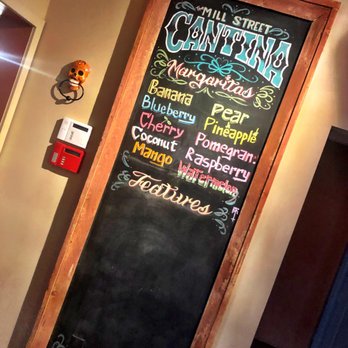 MILL STREET
CANTINA
Margaritas
Banana
Blueberry
Cherry
Coconut
Mango
Pear
Pineapple
Pomegran.
Raspberry
Watermelon
Features